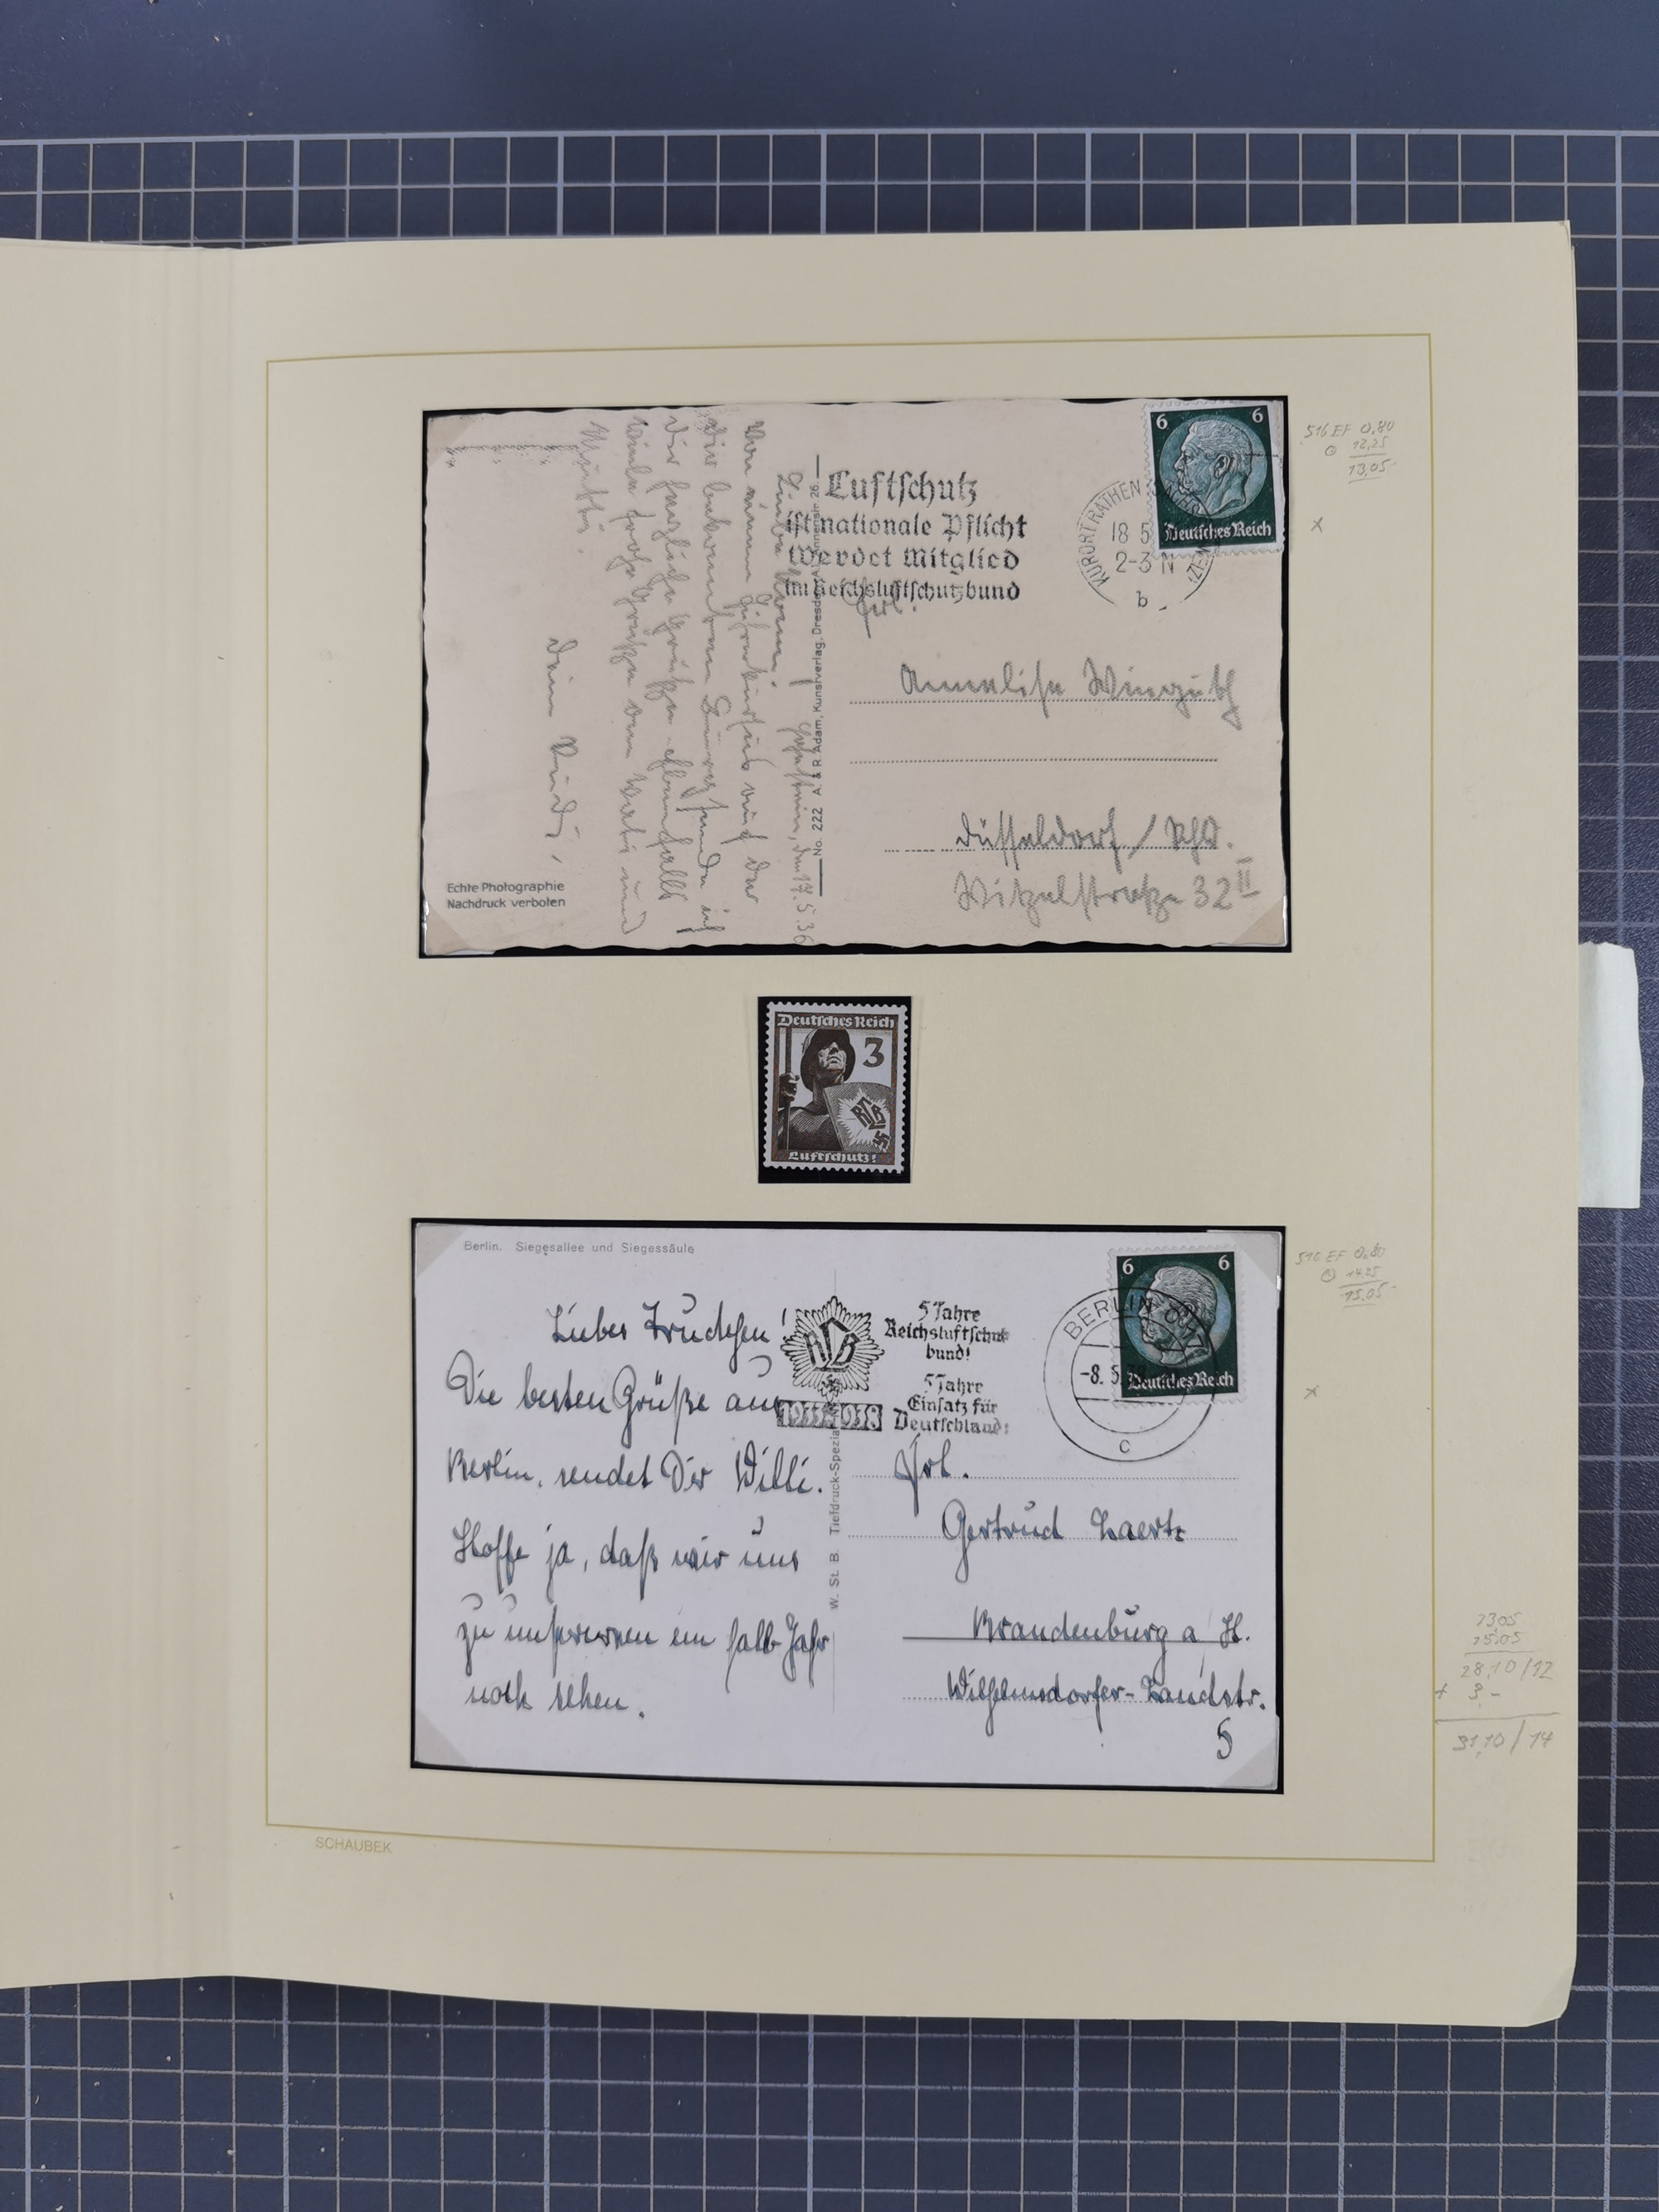 6 6
Deutsches Reich
Luftschutz
ist nationale Pflicht
Werdet Mitglied
im Reichsluftschutzbund
KURORT RATHEN
18 5
2-3 N
b
516 EF 0,80
12,25
13,05
x
Liebe
Von meiner
Dir
herzliche Grüße
frohe Grüße von Vati und
Mutti.
den 17.5.36
No. 222 A. & R. Adam, Kunstverlag, Dresden
Frl.
Annelise Winguth
Düsseldorf / Rhd.
Witzelstraße 32 II
Echte Photographie
Nachdruck verboten
Deutsches Reich
3
RLB
Luftschutz!
Berlin. Siegesallee und Siegessäule
6 6
Deutsches Reich
BERLIN
-8. 5.
c
RLB
1933-1938
5 Jahre
Reichsluftschutz
bund!
5 Jahre
Einsatz für
Deutschland!
516 EF 0.80
14.25
15.05
x
Liebes Trudchen!
Die besten Grüße aus
Berlin, sendet Dir Willi.
Hoffe ja, daß wir uns
zu ein halb Jahr
noch sehen.
W. St. B. Tiefdruck-Spezial
Frl.
Gertrud
Brandenburg a/H.
Wilhelmsdorfer-Landstr.
5
13,05
15,05
28,10/12
+ 3,-
31,10/14
SCHAUBEK